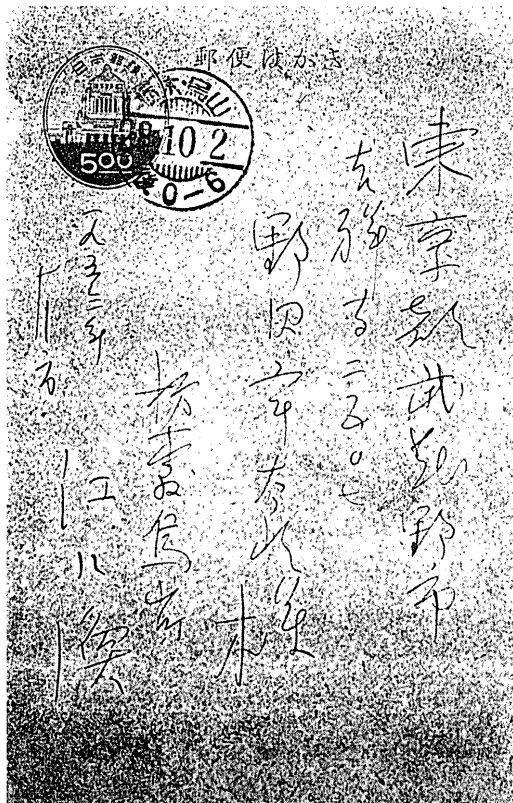 郵便はがき
日本郵便
500
栃木・烏山
10 2
後0-6
東京都武蔵野市
吉祥寺二五〇七
野田宇太郎様
栃木県烏山
江口渙